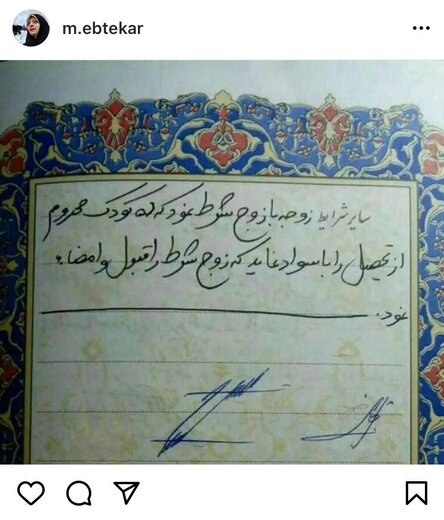 m.ebtekar
سایر شرایط زوجه با زوج شرط نمود که کودک محروم
از تحصیل را با سواد نماید که زوج شرط را قبول و امضاء
نمود.